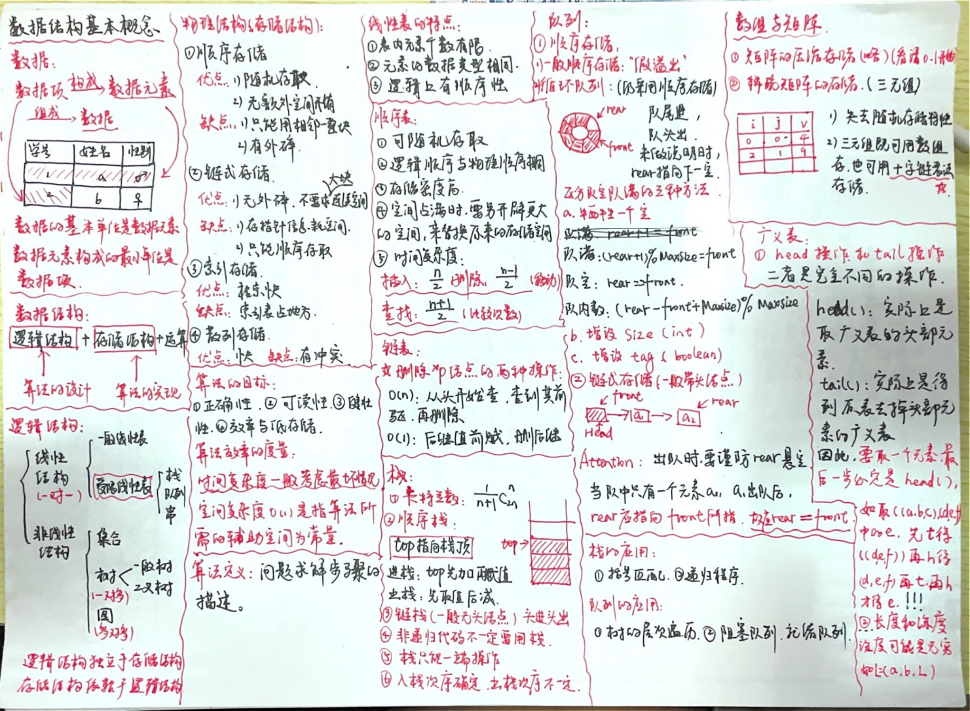 数据结构基本概念
数据:
数据项 构成→ 数据元素
组成→ 数据
学号 姓名 性别
1 a
2 b 女
数据的基本单位是数据元素
数据元素构成的最小单位是
数据项.
数据结构:
逻辑结构 + 存储结构 + 运算
算法的设计 算法的实现
逻辑结构:
线性
结构
(一对一)
一般线性表
受限线性表
栈
队列
串
非线性
结构
集合
树
(一对多)
一般树
二叉树
图
(多对多)
逻辑结构独立于存储结构
存储结构依赖于逻辑结构
物理结构(存储结构):
①顺序存储
优点: 1)随机存取
2)无额外空间开销
缺点: 1)只能用相邻一整块
2)有外碎.
②链式存储.
优点: 1)无外碎, 不需大块连续空间
缺点: 1)存在指针信息, 耗空间.
2)只能顺序存取
③索引存储.
优点: 检索快
缺点: 索引表占地方.
④散列存储.
优点: 快 缺点: 有冲突
算法的目标:
①正确性, ②可读性, ③健壮
性, ④效率与低存储.
算法效率的度量:
时间复杂度一般考虑最坏情况
空间复杂度O(1)是指算法所
需的辅助空间为常量.
算法定义: 问题求解步骤的
描述。
线性表的特点:
①表内元素个数有限.
②元素的数据类型相同.
③逻辑上有顺序性
顺序表:
①可随机存取
②逻辑顺序与物理顺序相同
③存储密度高.
④空间占满时, 需另开辟更大
的空间, 来替换原来的存储空间
⑤时间复杂度:
插入: n/2 删除: n-1/2 (移动)
查找: n+1/2 (比较次数)
链表:
删除 结点的两种操作:
O(n): 从头开始查, 查到其前
驱, 再删除
O(1): 后继值前赋, 删后继
栈:
①卡特兰数: 1/n+1 C n 2n
②顺序栈:
top指向栈顶
进栈: top先加再赋值
出栈: 先取值后减.
top→
③链栈(一般无头结点) 头进头出
④非递归代码不一定要用栈.
⑤栈只能一端操作
⑥入栈次序确定, 出栈次序不一定.
队列:
①顺序存储,
1)一般顺序存储: "假溢出"
循环队列: (仍采用顺序存储)
rear
front
队尾进,
队头出.
未做说明时,
rear指向下一空.
区分队空队满的三种方法.
a. 牺牲一个空
队满: rear+1 = front
队满: (rear+1)%Maxsize=front
队空: rear=front.
队内数: (rear-front+Maxsize)% Maxsize
b. 增设 size (int)
c. 增设 tag (boolean)
②链式存储(一般带头结点)
front rear
→ a₁ → a₂
Head
Attention: 出队时, 要谨防rear悬空
当队中只有一个元素a₁, a₁出队后,
rear应指向front所指. 故应rear = front.
栈的应用:
①括号匹配, ②递归程序.
队列的应用:
①树的层次遍历. ②阻塞队列, 记录队列.
数组与矩阵
①矩阵的压缩存储 (略) (看清0,1开始)
②稀疏矩阵的存储. (三元组)
i j v
0 0 4
2 1 9
1) 失去随机存储特性
2) 三元组既可用数组
存, 也可用十字链表法
存储. ☆
广义表:
① head操作和tail操作
二者是完全不同的操作.
head(): 实际上是
取广义表的头部元
素.
tail(): 实际上是得
到原表去掉头部元
素的广义表
因此, 要取一个元素, 最
后一步必定是head(),
如取((a,b,c),(d,e,f)
中的e, 先t得
((d,e,f))再h得
(d,e,f)再t, 再h
才得e. !!!
②长度和深度
深度可能是无穷
如L(a,b,L)